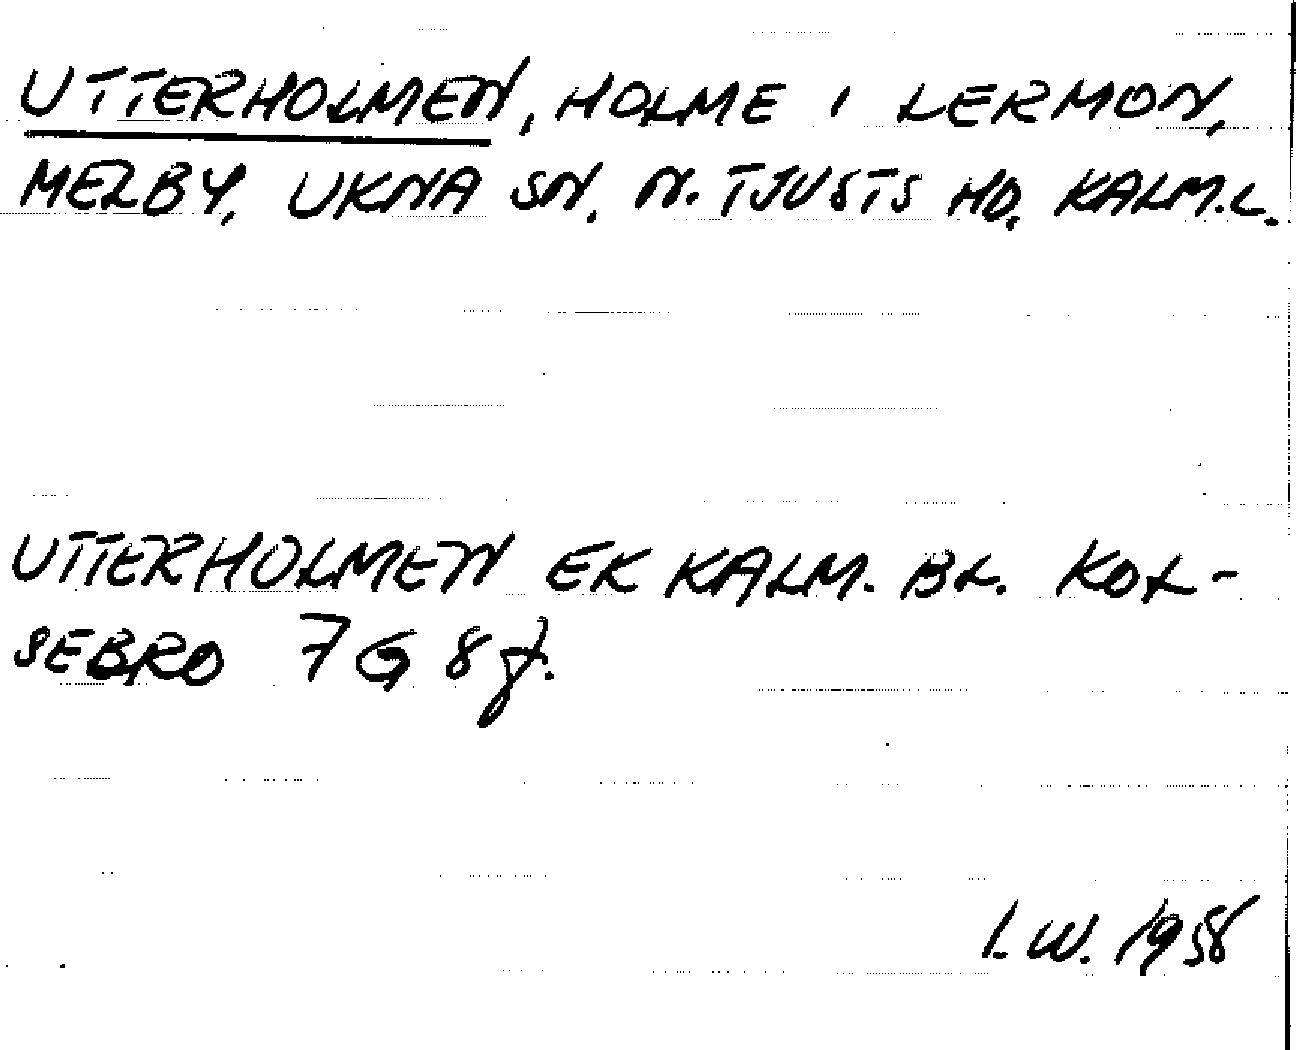 UTTERHOLMEN, HOLME I LERMON,
MELBY, UKNA SN. N. TJUSTS HD, KALM.L.
UTTERHOLMEN EK KALM. BL. KOL-
SEBRO 7 G 8 f.
I.W. 1958